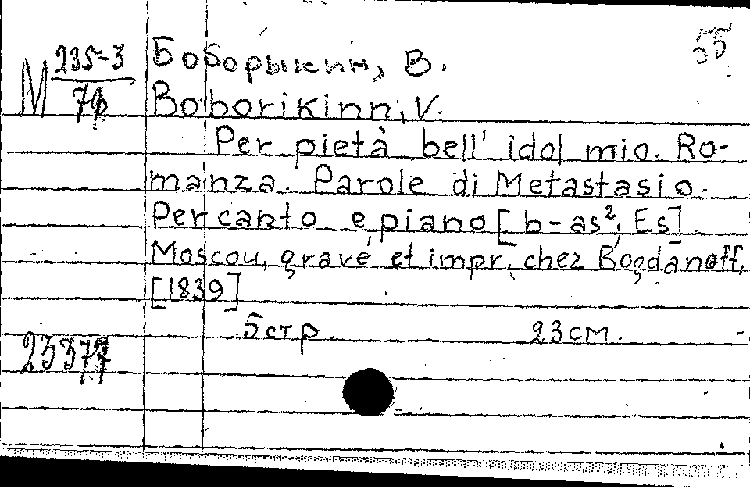 55
М 235-3
Бобориkин, В.
Boborikinn, V.
Per pietà bell' idol mio. Ro-
manza. Parole di Metastasio.
Per canto e piano [b-as², Es]
Moscou, gravé et impr. chez Bogdanoff,
[1839]
5 стр 23 см.